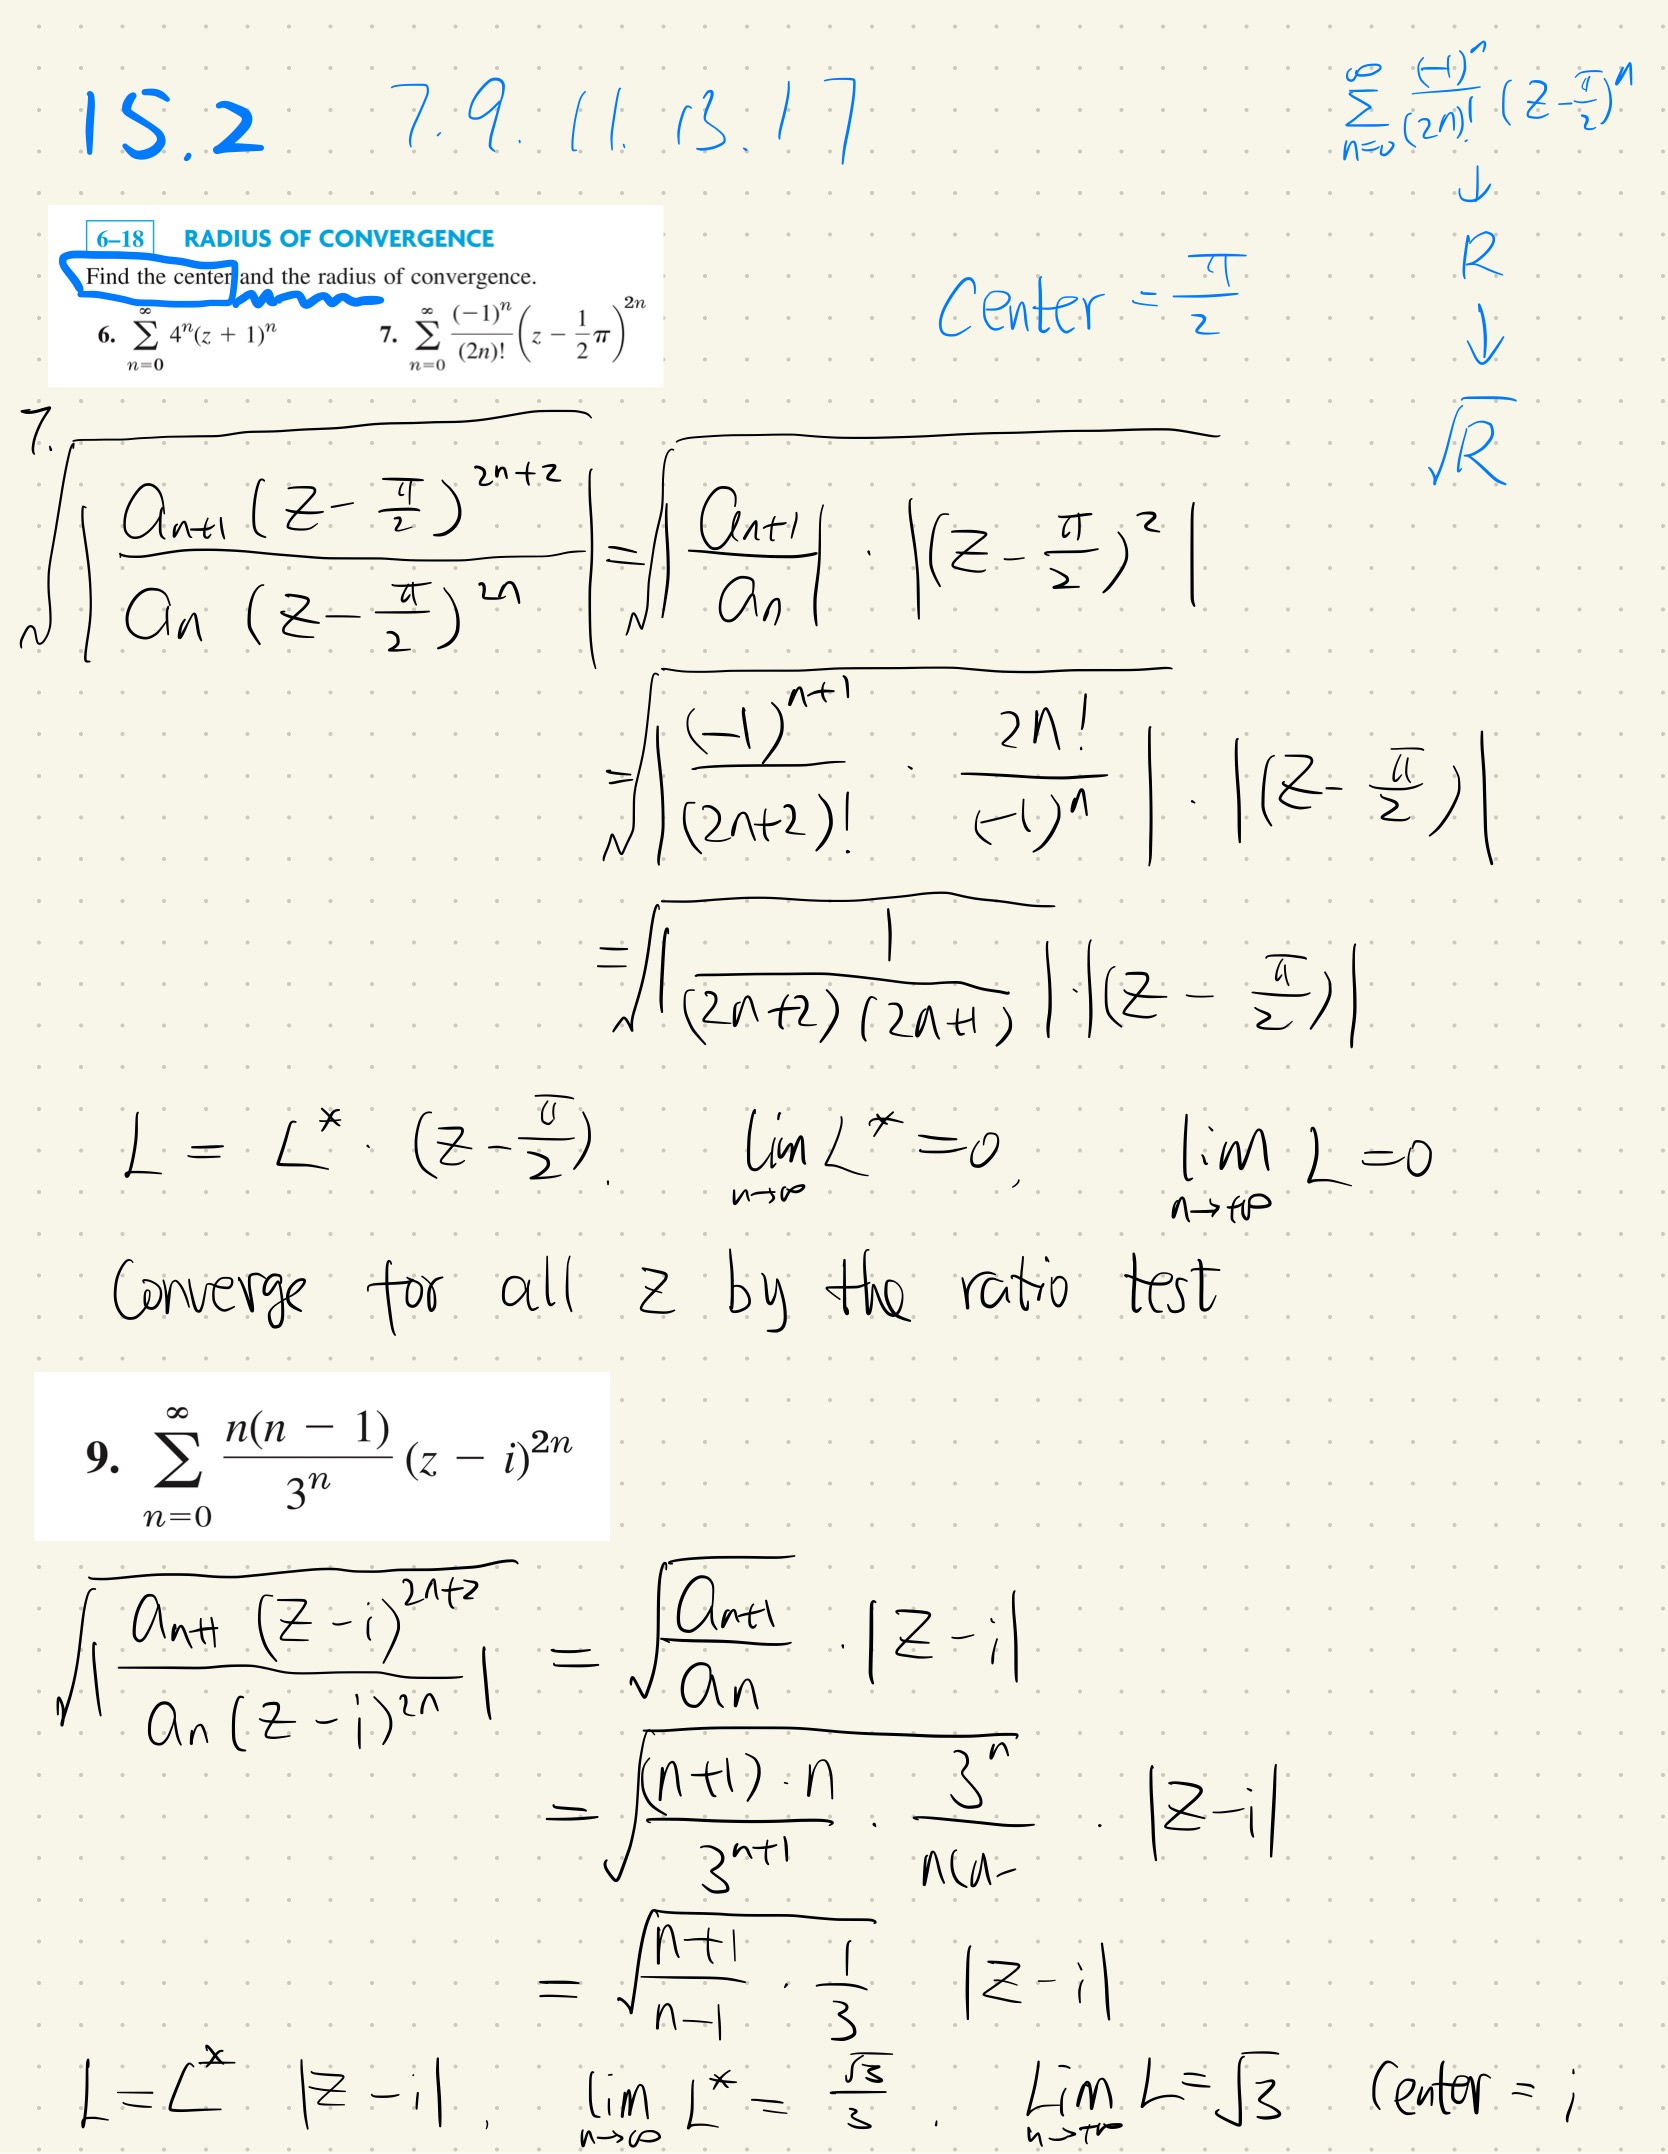 15.2 7. 9. 11. 13. 17
∞ Σ n=0 (-1)^n/(2n)! (z-π/2)^n
↓
R
↓
√R
6–18 RADIUS OF CONVERGENCE
Find the center and the radius of convergence.
6. ∞ Σ n=0 4^n(z + 1)^n 7. ∞ Σ n=0 (−1)^n/(2n)! (z − 1/2 π)^2n
Center = π/2
7. √|a_n+1 (z-π/2)^2n+2 / a_n (z-π/2)^2n| = √|a_n+1/a_n| · |(z-π/2)^2|
= √|(-1)^n+1/(2n+2)! · 2n!/(-1)^n| · |(z-π/2)|
= √|1/(2n+2)(2n+1)| · |(z-π/2)|
L = L* · (z-π/2). lim n→∞ L* = 0, lim n→+∞ L = 0
Converge for all z by the ratio test
9. ∞ Σ n=0 n(n − 1)/3^n (z − i)^2n
√|a_n+1 (z-i)^2n+2 / a_n (z-i)^2n| = √a_n+1/a_n · |z-i|
= √(n+1)·n/3^n+1 · 3^n/n(n- · |z-i|
= √n+1/n-1 · 1/3 |z-i|
L = L* |z-i|. lim n→∞ L* = √3/3. Lim n→+∞ L = √3 Center = i